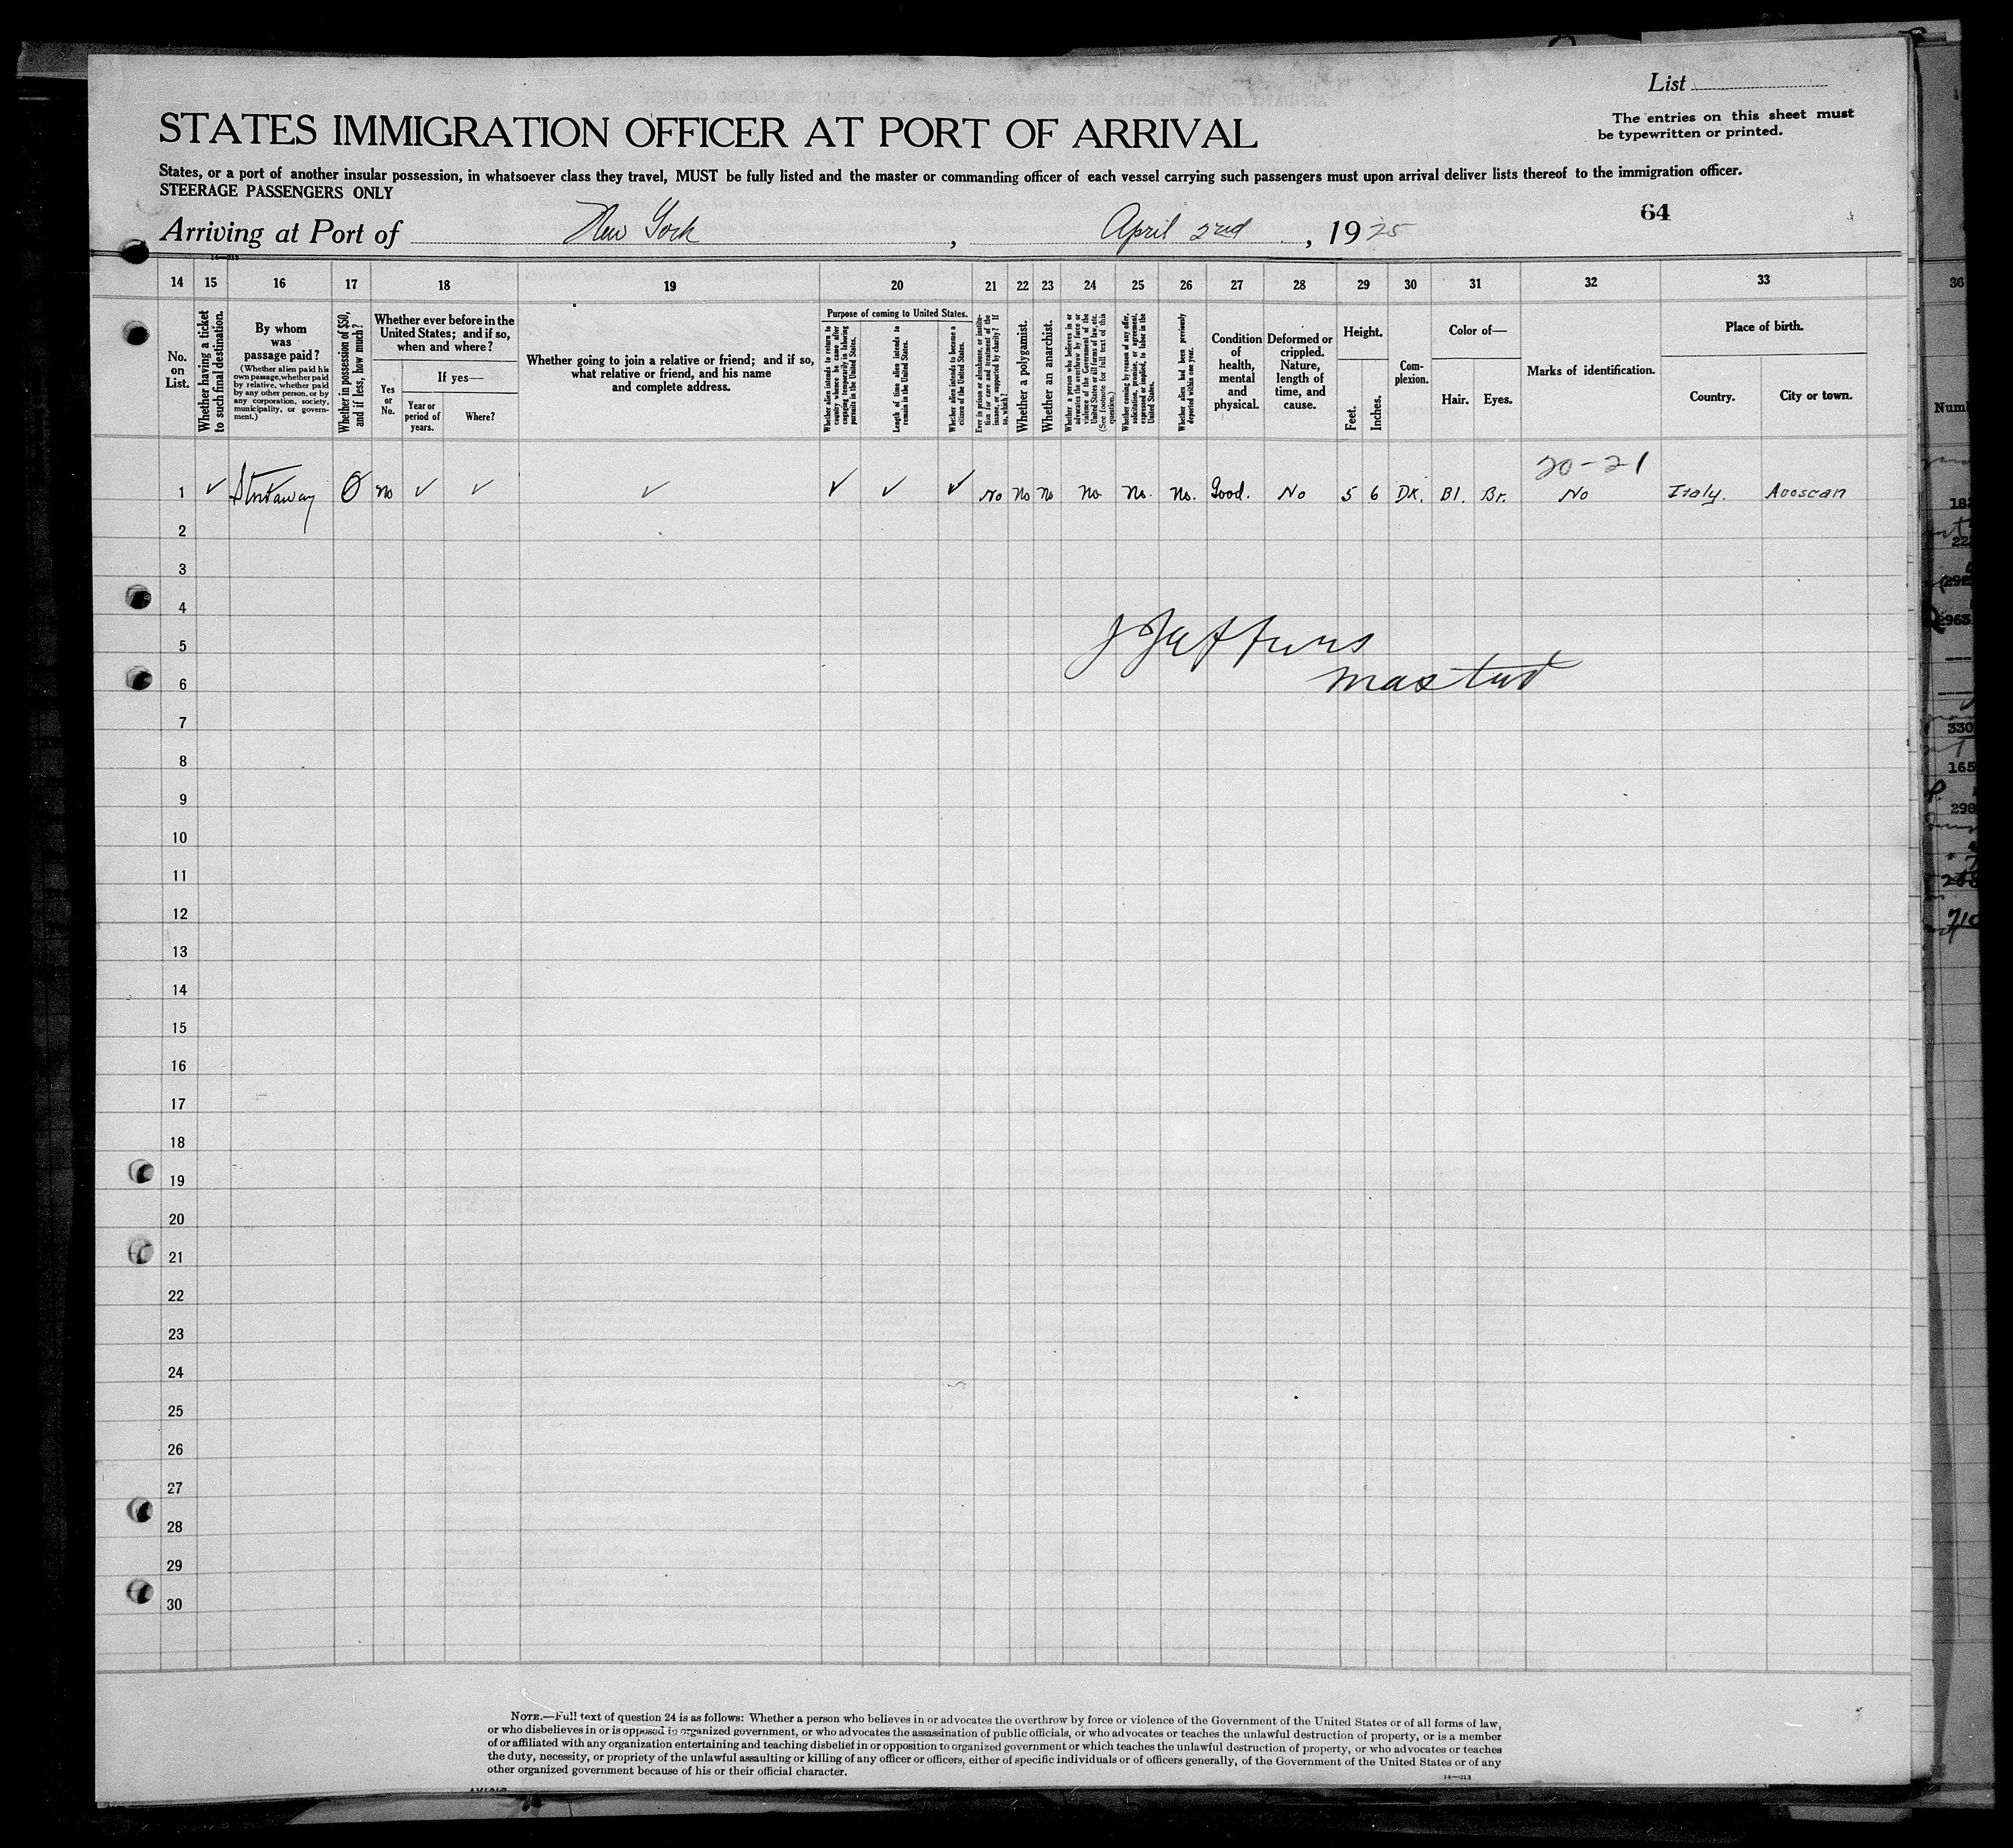 List
The entries on this sheet must
be typewritten or printed.
STATES IMMIGRATION OFFICER AT PORT OF ARRIVAL
States, or a port of another insular possession, in whatsoever class they travel, MUST be fully listed and the master or commanding officer of each vessel carrying such passengers must upon arrival deliver lists thereof to the immigration officer.
STEERAGE PASSENGERS ONLY
64
Arriving at Port of New York, April 2nd, 1925
14—213
14 15 16 17 18 19 20 21 22 23 24 25 26 27 28 29 30 31 32 33
No.
on
List.
Whether having a ticket
to such final destination.
By whom
was
passage paid?
(Whether alien paid his
own passage, whether paid
by relative, whether paid
by any other person, or by
any corporation, society,
municipality, or govern-
ment.)
Whether in possession of $50,
and if less, how much?
Whether ever before in the
United States; and if so,
when and where?
Yes
or
No.
If yes—
Year or
period of
years.
Where?
Whether going to join a relative or friend; and if so,
what relative or friend, and his name
and complete address.
Purpose of coming to United States.
Whether alien intends to return to
country whence he came after
engaging temporarily in laboring
pursuits in the United States.
Length of time alien intends to
remain in the United States.
Whether alien intends to become a
citizen of the United States.
Ever in prison or almshouse, or institu-
tion for care and treatment of the
insane, or supported by charity? If
so, which?
Whether a polygamist.
Whether an anarchist.
Whether a person who believes in or
advocates the overthrow by force or
violence of the Government of the
United States or all forms of law, etc.
(See footnote for full text of this
question.)
Whether coming by reason of any offer,
solicitation, promise, or agreement,
expressed or implied, to labor in the
United States.
Whether alien had been previously
deported within one year.
Condition
of
health,
mental
and
physical.
Deformed or
crippled.
Nature,
length of
time, and
cause.
Height.
Feet.
Inches.
Com-
plexion.
Color of—
Hair.
Eyes.
Marks of identification.
Place of birth.
Country.
City or town.
20-21
1 ✓ Stowaway 0 no ✓ ✓ ✓ ✓ ✓ ✓ No no no no. no. no. Good. No 5 6 DK. Bl. Br. No Italy.
2
3
4
5
6
7
8
9
10
11
12
13
14
15
16
17
18
19
20
21
22
23
24
25
26
27
28
29
30
NOTE.—Full text of question 24 is as follows: Whether a person who believes in or advocates the overthrow by force or violence of the Government of the United States or of all forms of law,
or who disbelieves in or is opposed to organized government, or who advocates the assassination of public officials, or who advocates or teaches the unlawful destruction of property, or is a member
of or affiliated with any organization entertaining and teaching disbelief in or opposition to organized government or which teaches the unlawful destruction of property, or who advocates or teaches
the duty, necessity, or propriety of the unlawful assaulting or killing of any officer or officers, either of specific individuals or of officers generally, of the Government of the United States or of any
other organized government because of his or their official character.
14—213
36
330
165
298